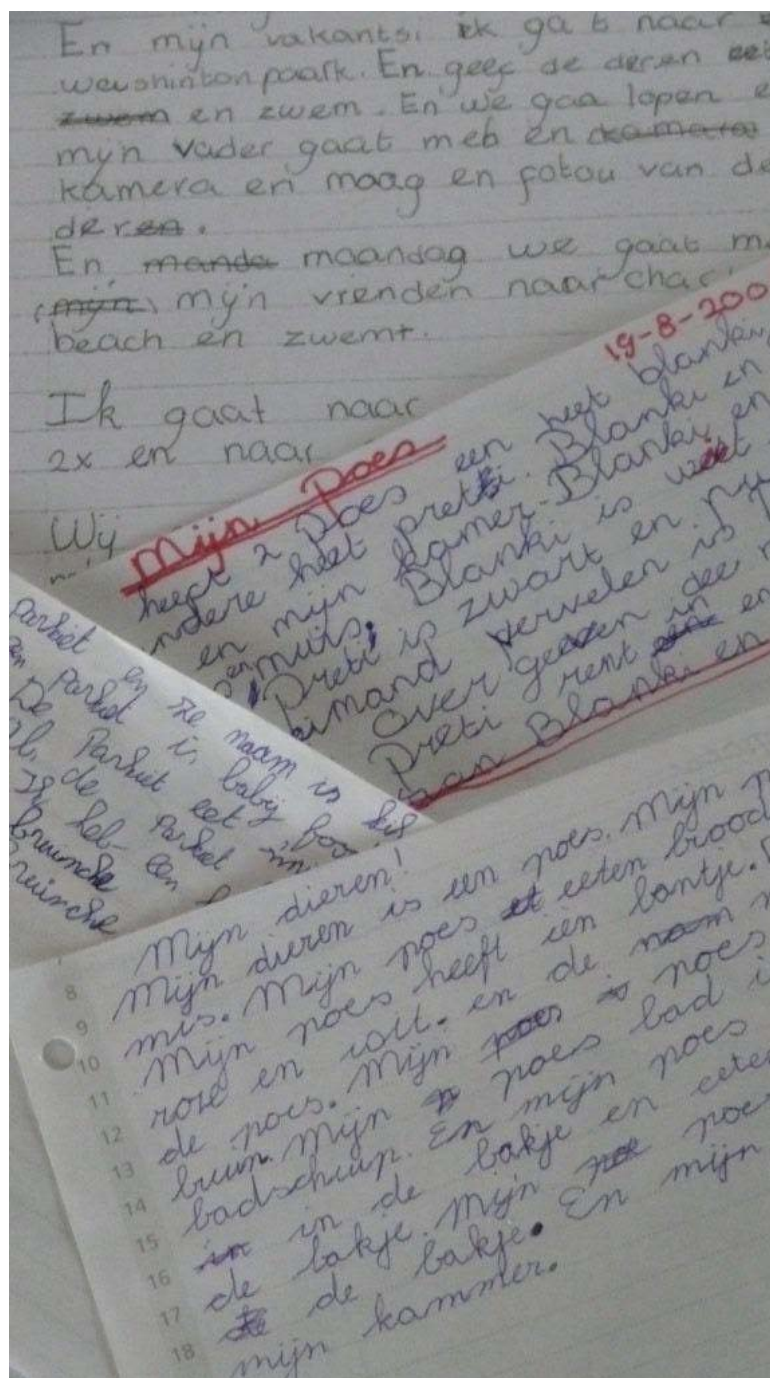 En mijn vakantsi ik gat naar
washinton paark. En geef de deren eet
zwem en zwem. En we gaa lopen e
mijn vader gaat met en kamera
kamera en maag en fotou van de
deren.
En manda maandag we gaat m
(mijn) mijn vrenden naar chac
beach en zwemt.
Ik gaat naar
2x en naar
Wij
19-8-200
Mijn Poes
heeft 2 Poes een heet blanki,
ndere heet pretti. Blanki en
en mijn kamer. Blanki en
muis. Blanki is wet
Preti is zwart en
iemand vervelen is
over geven dee
Preti rent en en
van Blanki en
Parkiet en de naam is
en Parkiet is baby
De Parkiet eet
de Parkiet in
Ik heb een
bruinche
ruinche
Mijn dieren!
8 Mijn dieren is een poes. Mijn p
9 mis. Mijn poes et eeten brood
10 Mijn poes heeft een bantje.
11 rose en en de naam
12 de poes. Mijn poes poes
13 bruin. Mijn poes bad i
14 badscuip. En mijn poes
15 in in de bakje en eete
16 de bakje. Mijn poe poes
17 de de bakje. En mijn
18 mijn kammer.